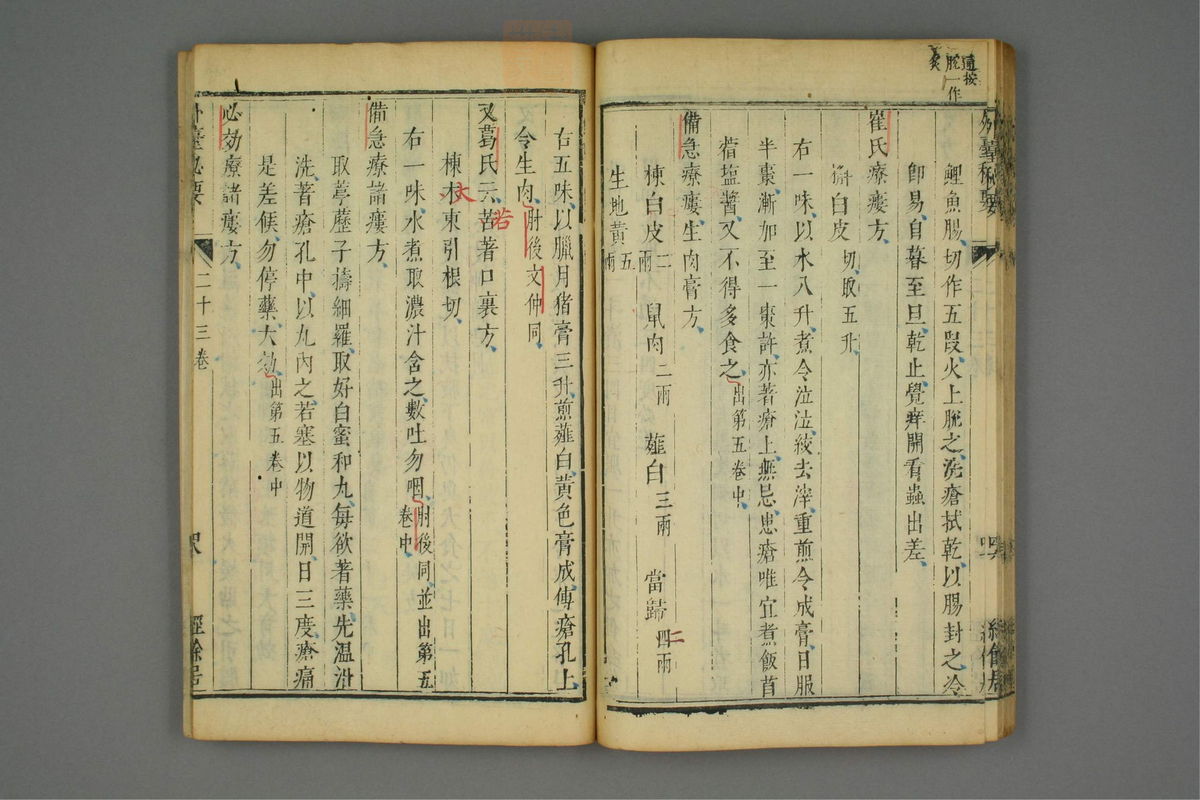 通按
脘一作
炙
外臺秘要
鯉魚腸切作五段火上脘之洗瘡拭乾以腸封之冷
卽易自暮至旦乾止覺痒開看蟲出差
崔氏療瘻方
槲白皮切取五升
右一味以水八升煮令泣泣絞去滓重煎令成膏日服
半棗漸加至一棗許亦著瘡上無忌患瘡唯宜煮飯苜
蓿塩醬又不得多食之出第五卷中
備急療瘻生肉膏方
楝白皮二兩 鼠肉二兩 薤白三兩 當歸四兩
二
生地黃五兩
右五味以臘月猪膏三升煎薤白黃色膏成傅瘡孔上
令生肉肘後文仲同
又葛氏云苦著口裏方
若
楝木東引根切
右一味水煮取濃汁含之數吐勿咽肘後同並出第五卷中
備急療諸瘻方
取葶藶子擣細羅取好白蜜和丸每欲著藥先溫泔
洗著瘡孔中以丸內之若塞以物道開日三度瘡痛
是差候勿停藥大効出第五卷中
必効療諸瘻方
外臺秘要
二十三卷
經餘居